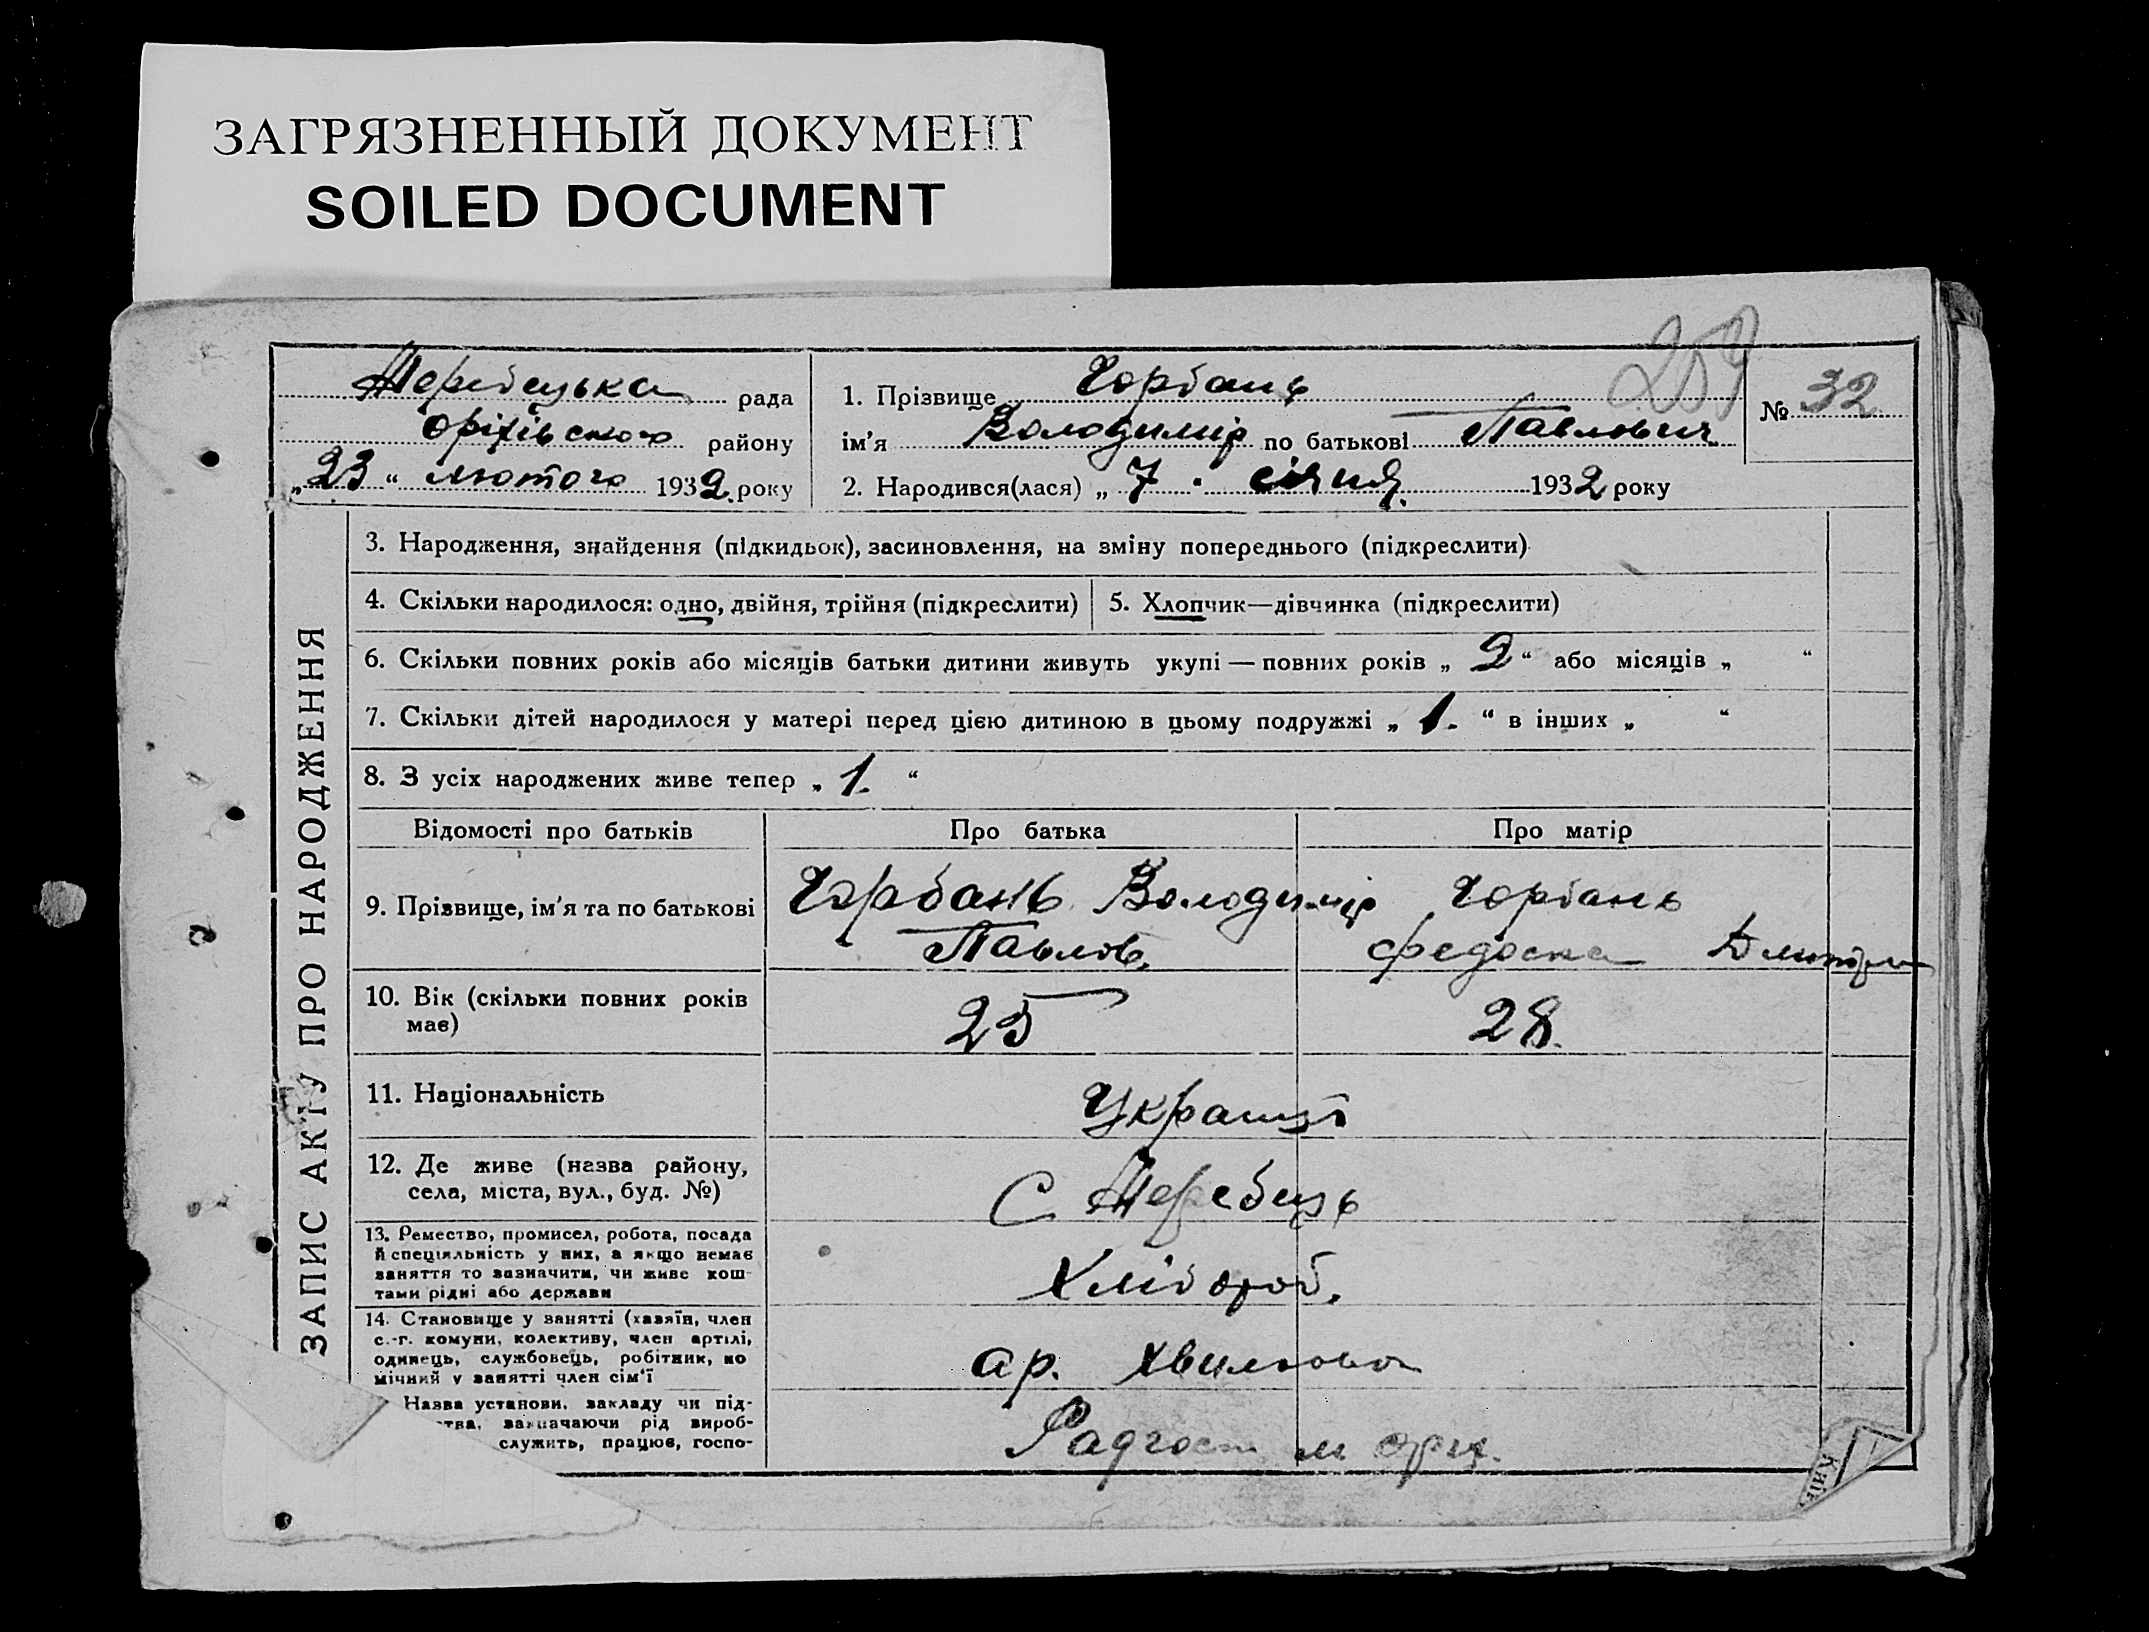 ЗАГРЯЗНЕННЫЙ ДОКУМЕНТ
SOILED DOCUMENT
259
Жеребецька рада
Оріхівського району
„23“ лютого 1932 року
1. Прізвище Горбань
ім'я Володимір по батькові Павлович
2. Народився(лася) „7“ січня 1932 року
№ 32
ЗАПИС АКТУ ПРО НАРОДЖЕННЯ
3. Народження, знайдення (підкидьок), засиновлення, на зміну попереднього (підкреслити)
4. Скільки народилося: одно, двійня, трійня (підкреслити)
5. Хлопчик—дівчинка (підкреслити)
6. Скільки повних років або місяців батьки дитини живуть укупі — повних років „ 2 “ або місяців „ “
7. Скільки дітей народилося у матері перед цією дитиною в цьому подружжі „ 1. “ в інших „ “
8. З усіх народжених живе тепер „ 1. “
Відомості про батьків Про батька Про матір
9. Прізвище, ім'я та по батькові
Горбань Володимір
Павлов.
Горбань
Федоска Дмитр
10. Вік (скільки повних років
має)
25 28.
11. Національність
Українці
12. Де живе (назва району,
села, міста, вул., буд. №)
С Жеребець
13. Ремество, промисел, робота, посада
й спеціяльність у них, а якщо немає
заняття то зазначити, чи живе кош-
тами рідні або держави
Хлібороб.
14. Становище у занятті (хазяїн, член
с.-г. комуни, колективу, член артілі,
одинець, службовець, робітник, по
мічний у занятті член сім'ї
ар. Хвильова
Назва установи, закладу чи під-
тва, зазначаючи рід вироб-
служить, працює, госпо-
Радгосп м Оріх.
Київ